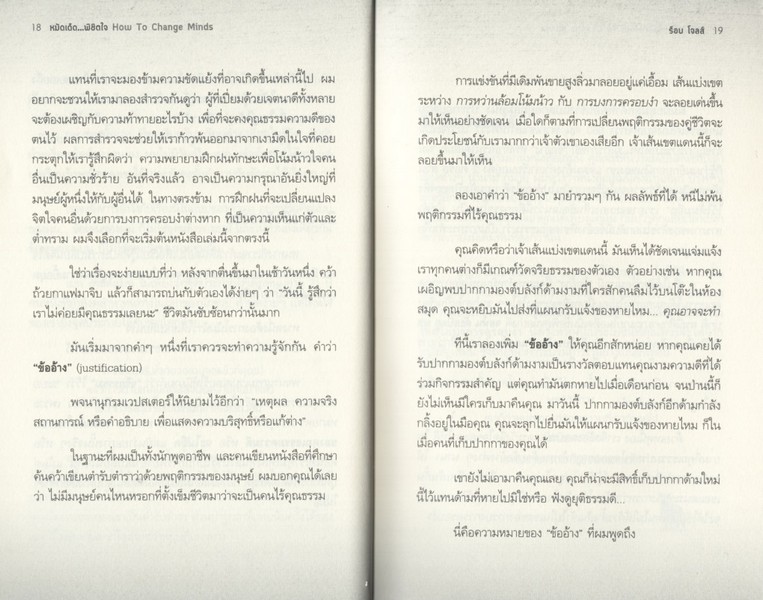 18 หมัดเด็ด...พิชิตใจ How To Change Minds
แทนที่เราจะมองข้ามความขัดแย้งที่อาจเกิดขึ้นเหล่านี้ไป ผม
อยากจะชวนให้เรามาลองสำรวจกันดูว่า ผู้ที่เปี่ยมด้วยเจตนาดีทั้งหลาย
จะต้องเผชิญกับความท้าทายอะไรบ้าง เพื่อที่จะคงคุณธรรมความดีของ
ตนไว้ ผลการสำรวจจะช่วยให้เราก้าวพ้นออกมาจากเงามืดในใจที่คอย
กระตุกให้เรารู้สึกผิดว่า ความพยายามฝึกฝนทักษะเพื่อโน้มน้าวใจคน
อื่นเป็นความชั่วร้าย อันที่จริงแล้ว อาจเป็นความกรุณาอันยิ่งใหญ่ที่
มนุษย์ผู้หนึ่งให้กับผู้อื่นได้ ในทางตรงข้าม การฝึกฝนที่จะเปลี่ยนแปลง
จิตใจคนอื่นด้วยการบงการครอบงำต่างหาก ที่เป็นความเห็นแก่ตัวและ
ต่ำทราม ผมจึงเลือกที่จะเริ่มต้นหนังสือเล่มนี้จากตรงนี้
ใช่ว่าเรื่องจะง่ายแบบที่ว่า หลังจากตื่นขึ้นมาในเช้าวันหนึ่ง คว้า
ถ้วยกาแฟมาจิบ แล้วก็สามารถบ่นกับตัวเองได้ง่ายๆ ว่า “วันนี้ รู้สึกว่า
เราไม่ค่อยมีคุณธรรมเลยนะ” ชีวิตมันซับซ้อนกว่านั้นมาก
มันเริ่มมาจากคำๆ หนึ่งที่เราควรจะทำความรู้จักกัน คำว่า
“ข้ออ้าง” (justification)
พจนานุกรมเวปสเตอร์ให้นิยามไว้อีกว่า “เหตุผล ความจริง
สถานการณ์ หรือคำอธิบาย เพื่อแสดงความบริสุทธิ์หรือแก้ต่าง”
ในฐานะที่ผมเป็นทั้งนักพูดอาชีพ และคนเขียนหนังสือที่ศึกษา
ค้นคว้าเขียนตำรับตำราว่าด้วยพฤติกรรมของมนุษย์ ผมบอกคุณได้เลย
ว่า ไม่มีมนุษย์คนไหนหรอกที่ตั้งเข็มชีวิตมาว่าจะเป็นคนไร้คุณธรรม
ร็อบ โจลส์ 19
การแข่งขันที่มีเดิมพันขายสูงลิ่วมาลอยอยู่แค่เอื้อม เส้นแบ่งเขต
ระหว่าง การหว่านล้อมโน้มน้าว กับ การบงการครอบงำ จะลอยเด่นขึ้น
มาให้เห็นอย่างชัดเจน เมื่อใดก็ตามที่การเปลี่ยนพฤติกรรมของคู่ชีวิตจะ
เกิดประโยชน์กับเรามากกว่าเจ้าตัวเขาเองเสียอีก เจ้าเส้นเขตแดนนี้ก็จะ
ลอยขึ้นมาให้เห็น
ลองเอาคำว่า “ข้ออ้าง” มายำรวมๆ กัน ผลลัพธ์ที่ได้ หนีไม่พ้น
พฤติกรรมที่ไร้คุณธรรม
คุณคิดหรือว่าเจ้าเส้นแบ่งเขตแดนนี้ มันเห็นได้ชัดเจนแจ่มแจ้ง
เราทุกคนต่างก็มีเกณฑ์วัดจริยธรรมของตัวเอง ตัวอย่างเช่น หากคุณ
เผอิญพบปากกามองต์บลังก์ด้ามงามที่ใครสักคนลืมไว้บนโต๊ะในห้อง
สมุด คุณจะหยิบมันไปส่งที่แผนกรับแจ้งของหายไหม... คุณอาจจะทำ
ทีนี้เราลองเพิ่ม “ข้ออ้าง” ให้คุณอีกสักหน่อย หากคุณเคยได้
รับปากกามองต์บลังก์ด้ามงามเป็นรางวัลตอบแทนคุณงามความดีที่ได้
ร่วมกิจกรรมสำคัญ แต่คุณทำมันตกหายไปเมื่อเดือนก่อน จนป่านนี้ก็
ยังไม่เห็นมีใครเก็บมาคืนคุณ มาวันนี้ ปากกามองต์บลังก์อีกด้ามกำลัง
กลิ้งอยู่ในมือคุณ คุณจะลุกไปยื่นมันให้แผนกรับแจ้งของหายไหม ก็ใน
เมื่อคนที่เก็บปากกาของคุณได้
เขายังไม่เอามาคืนคุณเลย คุณก็น่าจะมีสิทธิ์เก็บปากกาด้ามใหม่
นี้ไว้แทนด้ามที่หายไปมิใช่หรือ ฟังดูยุติธรรมดี...
นี่คือความหมายของ “ข้ออ้าง” ที่ผมพูดถึง